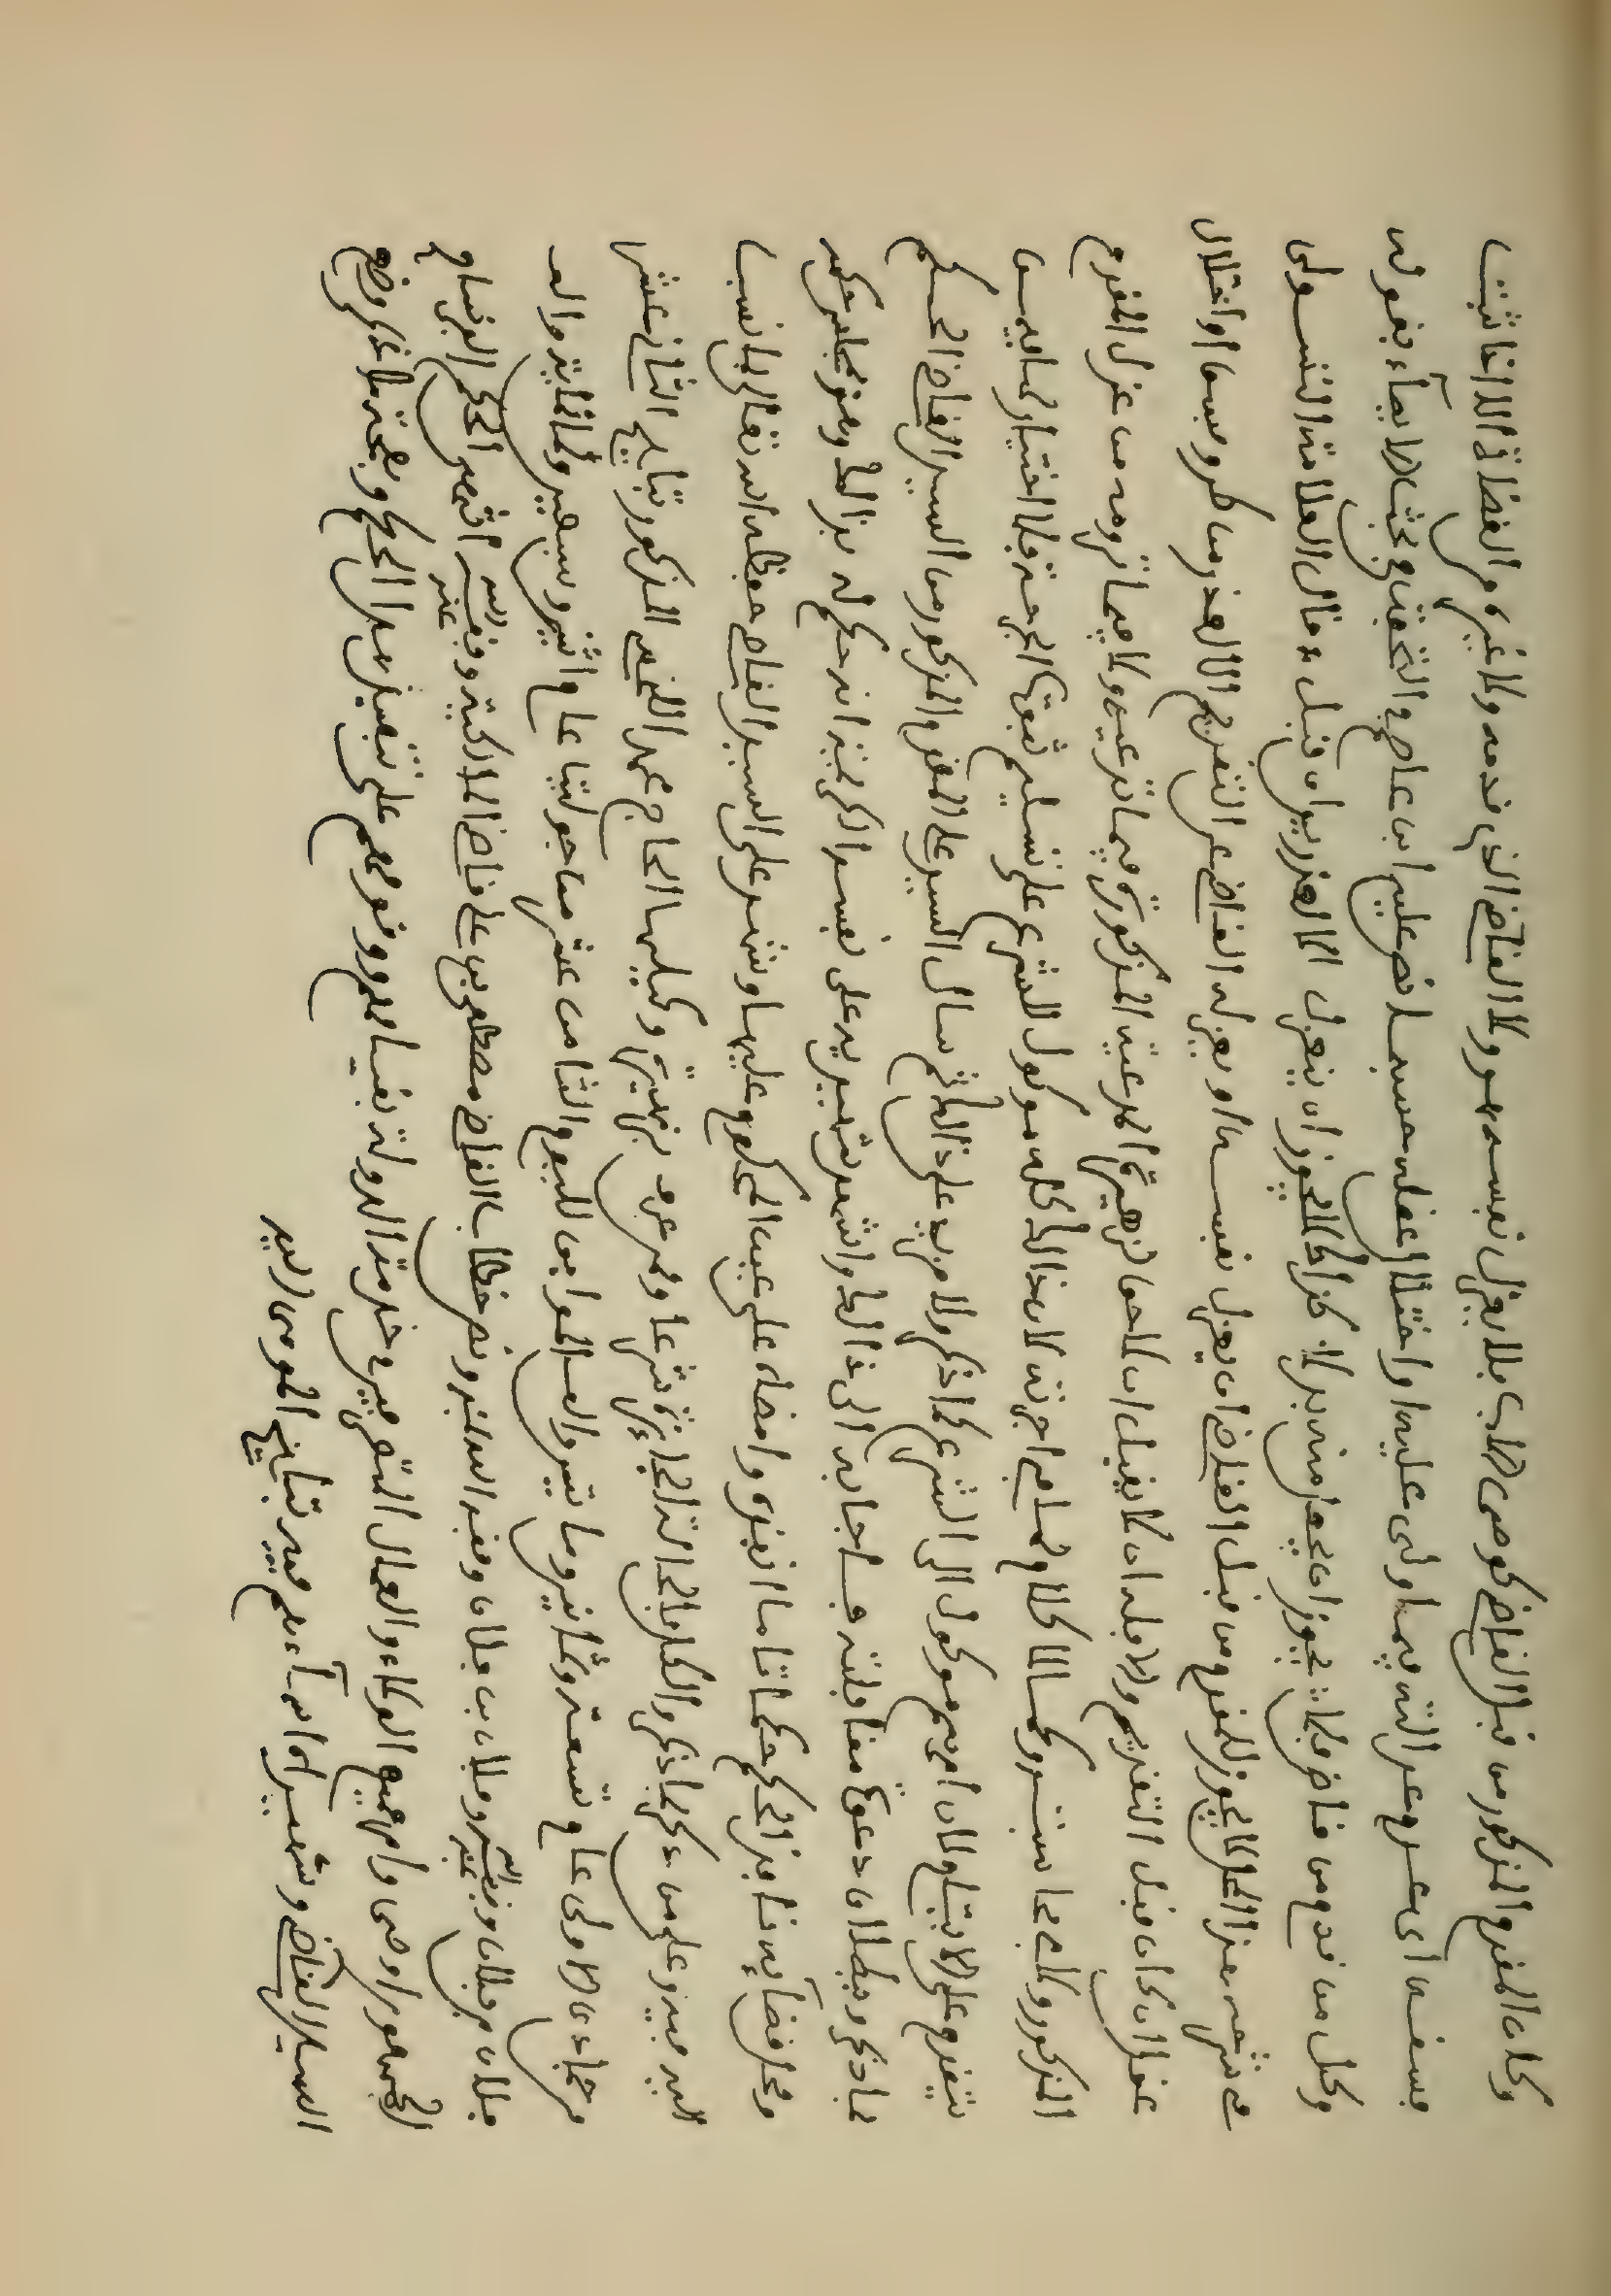 وكان المقدم المذكور من قبل القاضي كوصي الاب فلا يعزل نفسه هو ولا القاضي الذي قدمه ولا غيره من القضاة الا اذا ثبت
فسقه اي عدم عدالته فيما ولي عليه او اختلال عقله حسبما نص عليه ابن عاصم في التحفة في مبحث الايصاء بقوله
وكل من قدم من قاض فلا يجوز ان يجعل منه بدلا كذاك لا يجوز ان ينعزل الا لعذر بوان قبل قال العلامة التسولي
في شرحه هذا المحل لا يجوز للمقدم من قبل القاضي ان يعزل نفسه او يعزله القاضي عن التقديم الا لعذر من كبر وسفه او اختلال
عقل ان كان قبل التقديم ولا فله ان لا يقبل ان لاحها لزهيرة المدعية المذكورة فيما تدعيه ولا فيما تزومه من عزل المقدم
المذكور ولا في محاسبته وكما لا كلام لها في اجرته لان ذالك كله موكول للشرع على تسليم ثبوت الاجرة فلا اختيار لها فيمن
يتقدم على الايتام لان امرهم موكول الى الشرع كما ذكر ولا مزيد على ذالك ثم سال السيد علي المقدم المذكور من السيد القاضي الحكم
بما ذكر وببطلان دعوة مقابلته فاجابه الى ذالك واشهد شهيديه على نفسه الكريمة انه حكم له بذالك وهو بمجلس حكمه
ومحل قضائه نافذ الحكم حكما تاما انفذه وامضاه على عين المحكوم عليها وشهد على السيد القاضي حفظه الله تعالى بما نسب
اليه فيه وعلى من ذكر بما ذكر والكل بالحالة الجائزة شرعا وممن عرف بزهيرة وكيلها الحاج محمد اللغمي المذكور بتاريخ الثاني عشر
من جمادى الاولى عام تسعة وثمانين ومايتين والف الموافق لليوم الثامن عشر من جوليت عام اثنين وسبعين وثمانمائة والف
فلان بن فلان وفقه الله عنه وفلان بن فلان وفقه الله بمنه ونص خطاب القاضي مصطفى بن علي قاضي المالكية وفقه الله عنه اقتضى الحكم البرنساوي
الجمهور اوصى وامر جميع الوكلاء والعمال المتصرفين في خدمة الدولة بقيامهم ووقوفهم على تنفيذ هذا الحكم وبصحته ما ذكر وضع
السيد القاضي وشهيداه اسماءهم فيه بتاريخ المومى اليه